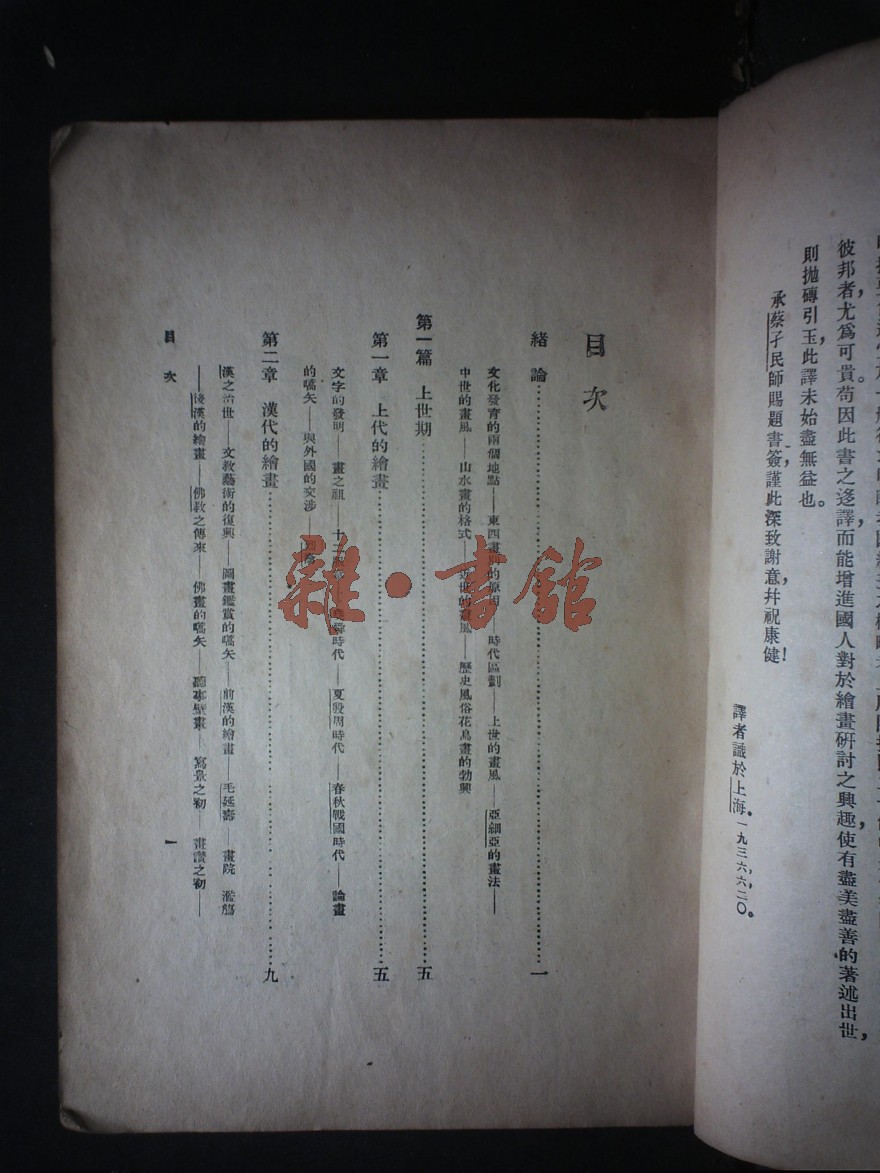 彼邦者，尤爲可貴。苟因此書之迻譯，而能增進國人對於繪畫研討之興趣，使有盡美盡善的著述出世，
則拋磚引玉，此譯未始盡無益也。
承蔡孑民師賜題書簽，謹此深致謝意，幷祝康健！
譯者識於上海。一九三六，六，二〇。
目次
緒論 一
文化發育的兩個地點——東西畫 的原因——時代區劃——上世的畫風——亞細亞的畫法——
中世的畫風——山水畫的格式——近世的畫風——歷史風俗花鳥畫的勃興
第一篇 上世期 五
第一章 上代的繪畫 五
文字的發明——畫之祖——十二 時代——夏殷周時代——春秋戰國時代——論畫
的嚆矢——與外國的交涉——
第二章 漢代的繪畫 九
漢之治世——文敎藝術的復興——圖畫鑑賞的嚆矢——前漢的繪畫——毛延壽——畫院 濫觴
——後漢的繪畫——佛敎之傳來——佛畫的嚆矢——聽事壁畫——寫景之初——畫讚之初——
目次
一
雜·書館